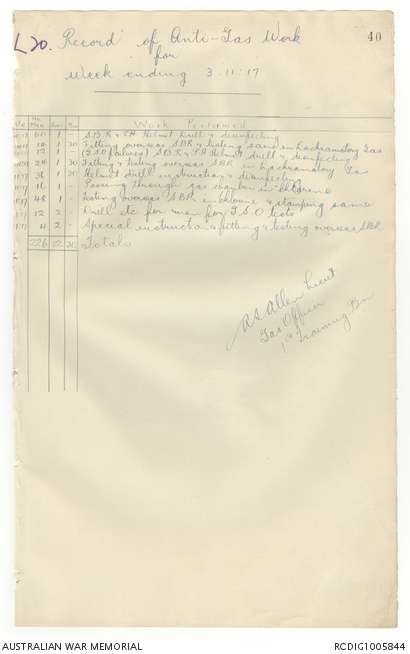 L20. Record of Anti-Gas Work 40
for
Week ending 3.11.17
No Men Hrs Work Performed
60 1 - S.B.R & P.H Helmet Drill & disinfecting
1 30 Fitting overseas SBR & testing same in Lachramatory Gas
12 1 - (G.S.O failures) S.B.R & P.H Helmet drill & disinfecting
1 30 Fitting & testing overseas SBR in Lachramatory Gas
1 30 Helmet drill instruction & disinfecting
16 1 - Passing through gas chamber in chlorine
48 1 - Testing overseas SBR in chlorine & stamping same
12 2 - Drill etc for men for G.S.O tests
4 2 - Special instruction & fitting & testing overseas SBR
226 12 30 Totals
AS Allen Lieut
Gas Officer
1st Training Bn
AUSTRALIAN WAR MEMORIAL RCDIG1005844